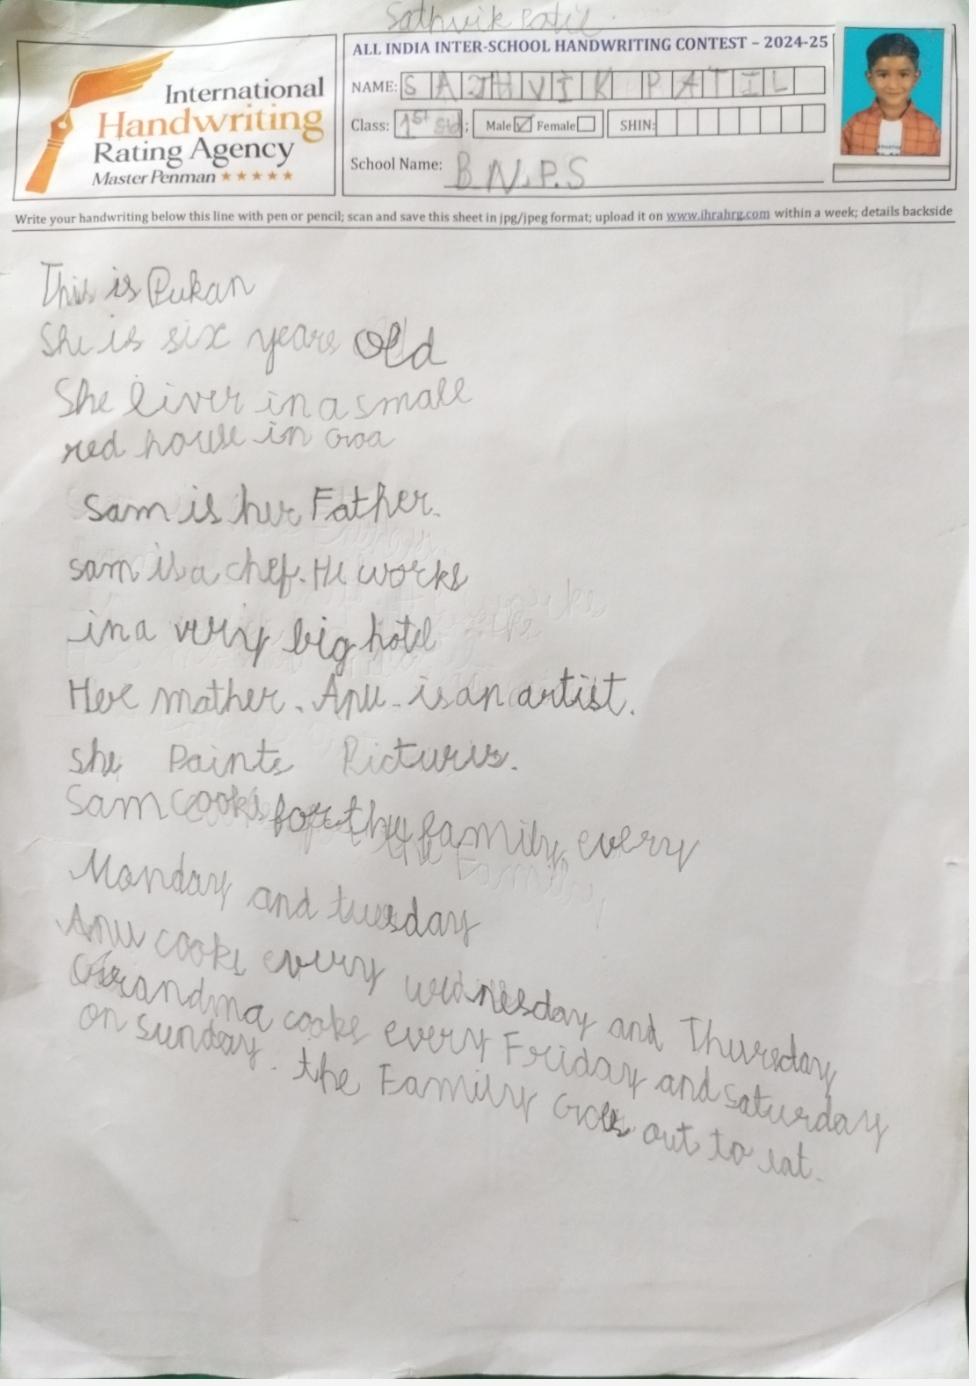 Sathvik Patil
ALL INDIA INTER-SCHOOL HANDWRITING CONTEST – 2024-25
International
Handwriting
Rating Agency
Master Penman ★★★★★
NAME: SATHVIK PATIL
Class: 1st std; Male ✓ Female SHIN:
School Name: B.N.P.S
Write your handwriting below this line with pen or pencil; scan and save this sheet in jpg/jpeg format; upload it on www.ihrahrg.com within a week; details backside
This is
She is six years old
She liver in a small
red house in Goa
Sam is her Father.
sam is a chef. He works
in a very big hotel
Her mather. Anu. is an artist.
she Paints Pictures.
Sam cooks for the family every
Monday and tuesday
Anu cooks every wednesday and Thursday
Grandma cooks every Friday and saturday
on sunday. the Family Goes out to eat.